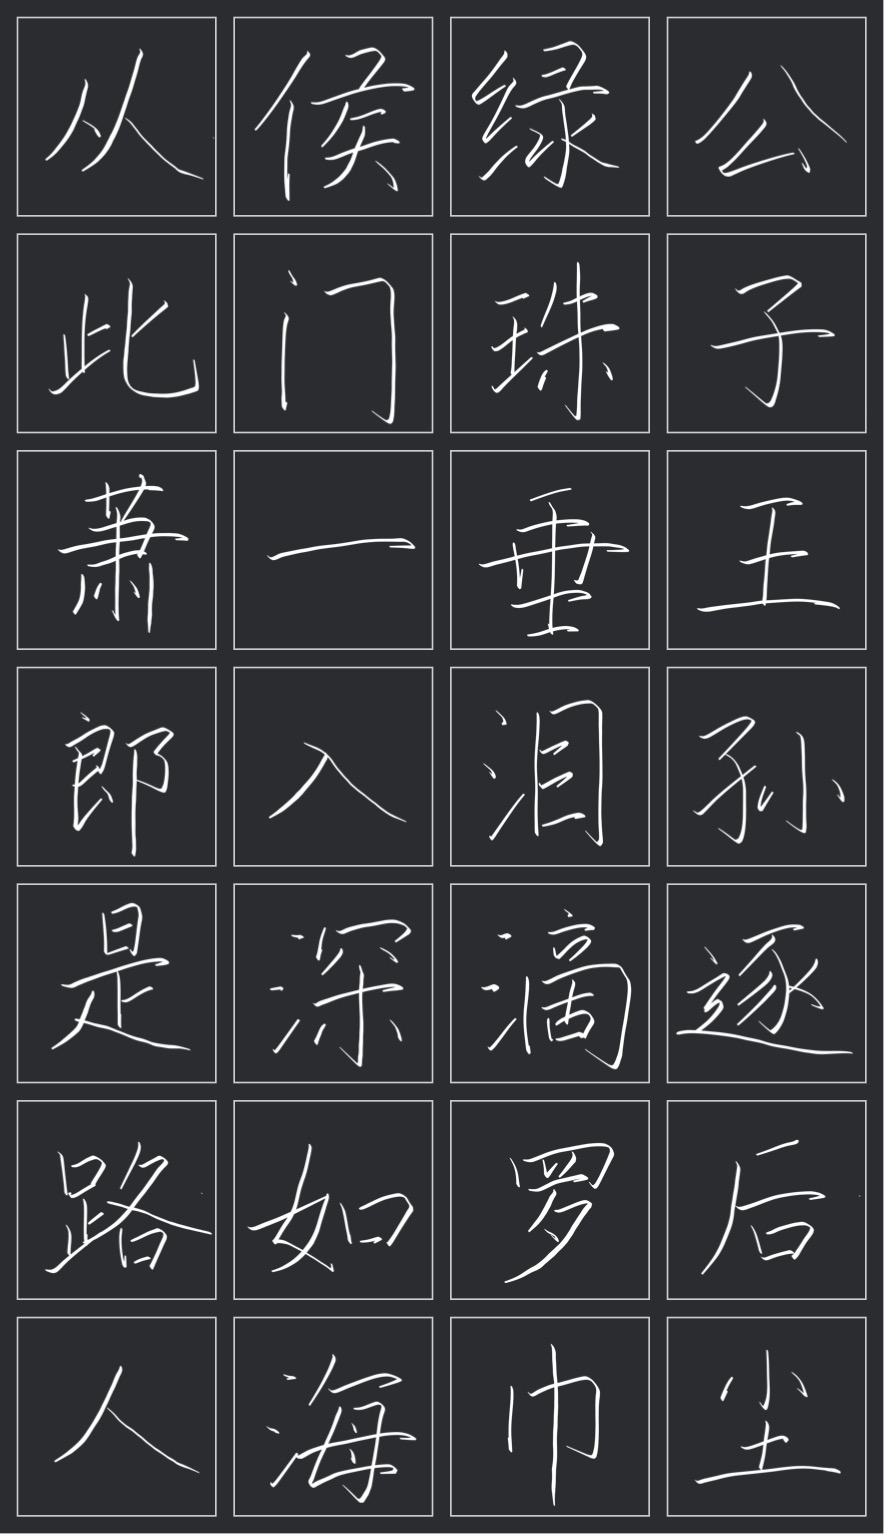 公子王孙逐后尘
绿珠垂泪滴罗巾
侯门一入深如海
从此萧郎是路人